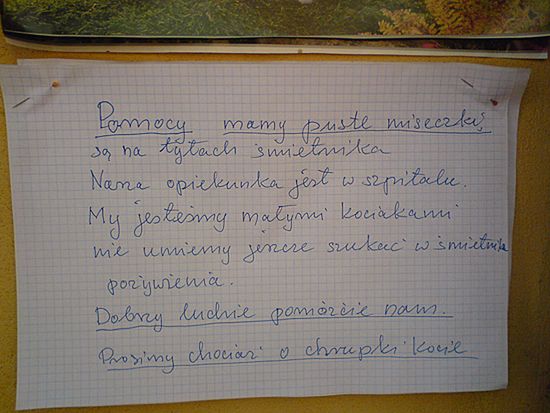 Pomocy mamy puste miseczki,
są na tyłach śmietnika
Nasza opiekunka jest w szpitalu.
My jesteśmy małymi kociakami
nie umiemy jeszcze szukać w śmietniku
pożywienia.
Dobrzy ludzie pomóżcie nam.
Prosimy chociaż o chrupki kocie